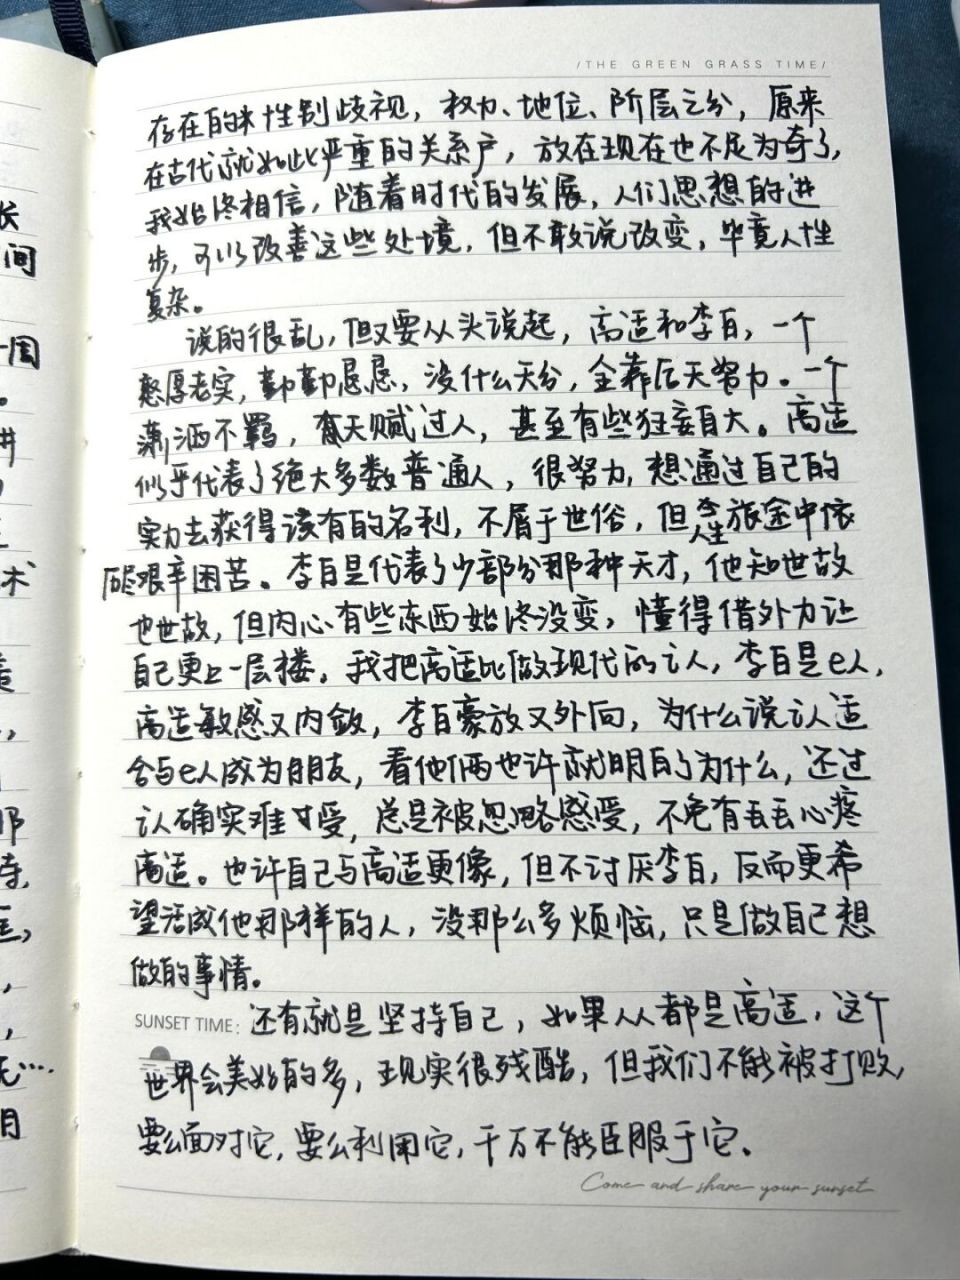 /THE GREEN GRASS TIME/
存在的来性别歧视，权力、地位、阶层之分，原来
在古代就如此严重的关系户，放在现在也不足为奇了，
我始终相信，随着时代的发展，人们思想的进
步，可以改善这些处境，但不敢说改变，毕竟人性
复杂。
说的很乱，但又要从头说起，高适和李白，一个
憨厚老实，勤勤恳恳，没什么天分，全靠后天努力。一个
潇洒不羁，有天赋过人，甚至有些狂妄自大。高适
似乎代表了绝大多数普通人，很努力，想通过自己的
实力去获得该有的名利，不屑于世俗，但人生旅途中依
旧艰辛困苦。李白是代表了少部分那种天才，他知世故
也世故，但内心有些东西始终没变，懂得借外力让
自己更上一层楼。我把高适比做现代的i人，李白是e人，
高适敏感又内敛，李白豪放又外向，为什么说i人适
合与e人成为朋友，看他们俩也许就明白了为什么，不过
i人确实难受，总是被忽略感受，不免有丢丢心疼
高适。也许自己与高适更像，但不讨厌李白，反而更希
望活成他那样的人，没那么多烦恼，只是做自己想
做的事情。
SUNSET TIME: 还有就是坚持自己，如果人人都是高适，这个
世界会美好的多，现实很残酷，但我们不能被打败，
要么面对它，要么利用它，千万不能臣服于它。
Come and share your sunset
长
间
国
。
讲
术
差
那
诗
月